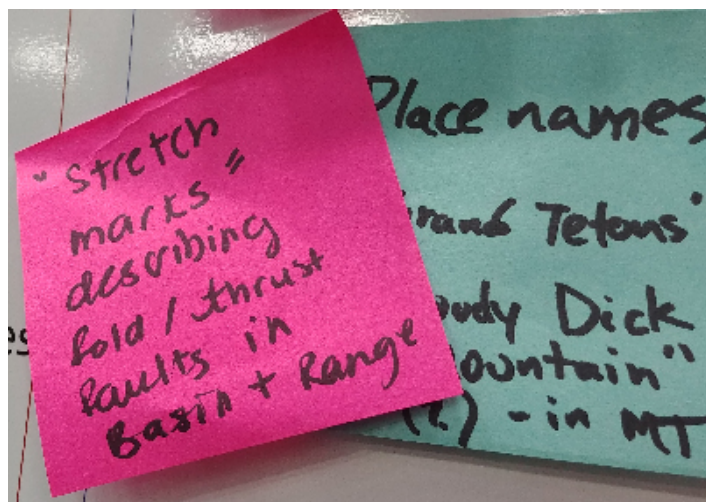 "Stretch
marks"
describing
fold / thrust
faults in
Basin + Range
Place names
Tetons"
Dick
(?) - in MT